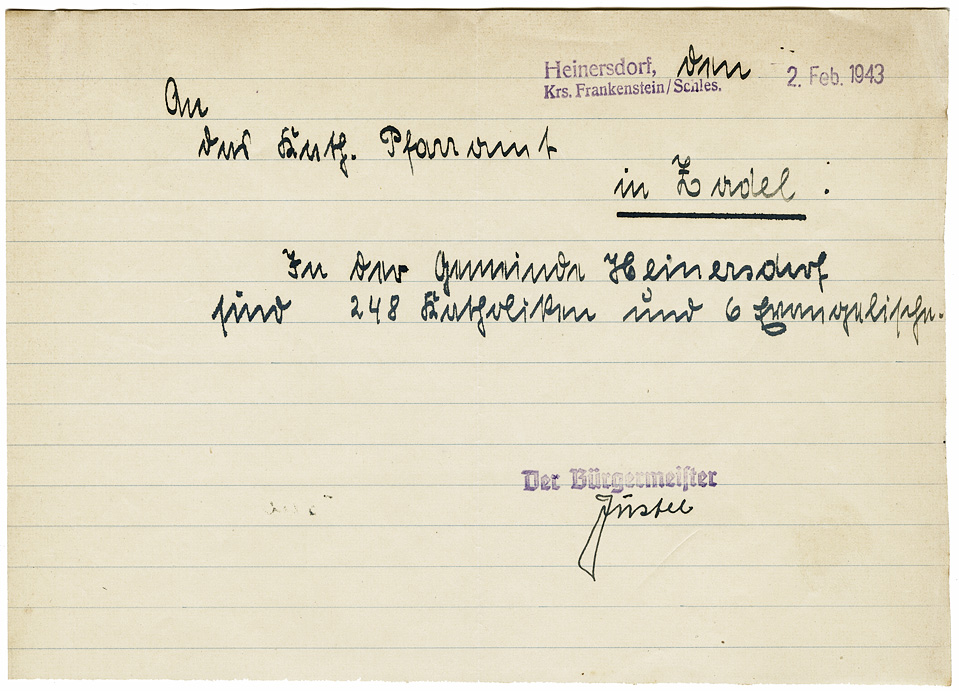 Heinersdorf, den 2. Feb. 1943
Krs. Frankenstein/Schles.
An
das Kath. Pfarramt
in Zadel.
In der Gemeinde Heinersdorf
sind 248 Katholiken und 6 Evangelische.
Der Bürgermeister
Jüstel